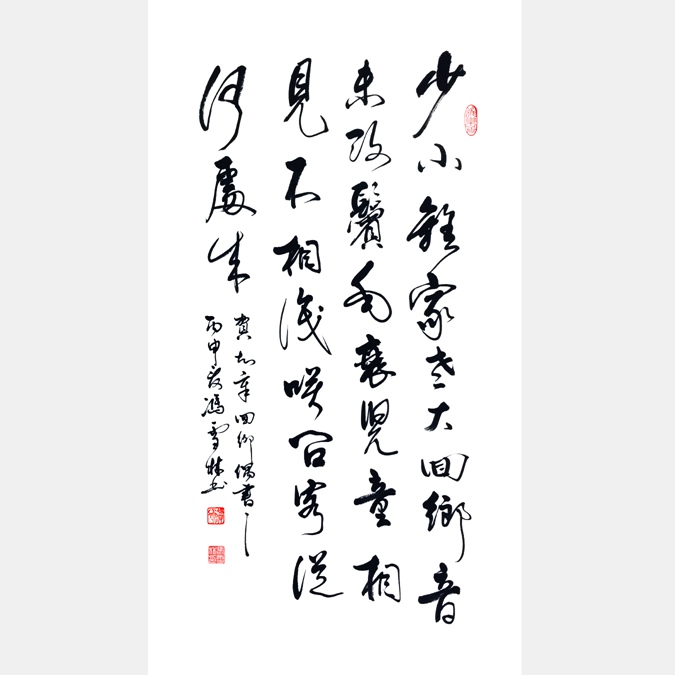 少小離家老大回鄉音
未改鬢毛衰兒童相
見不相識咲問客從
何處来
賀知章回鄉偶書之一
丙申夏馮雪林书